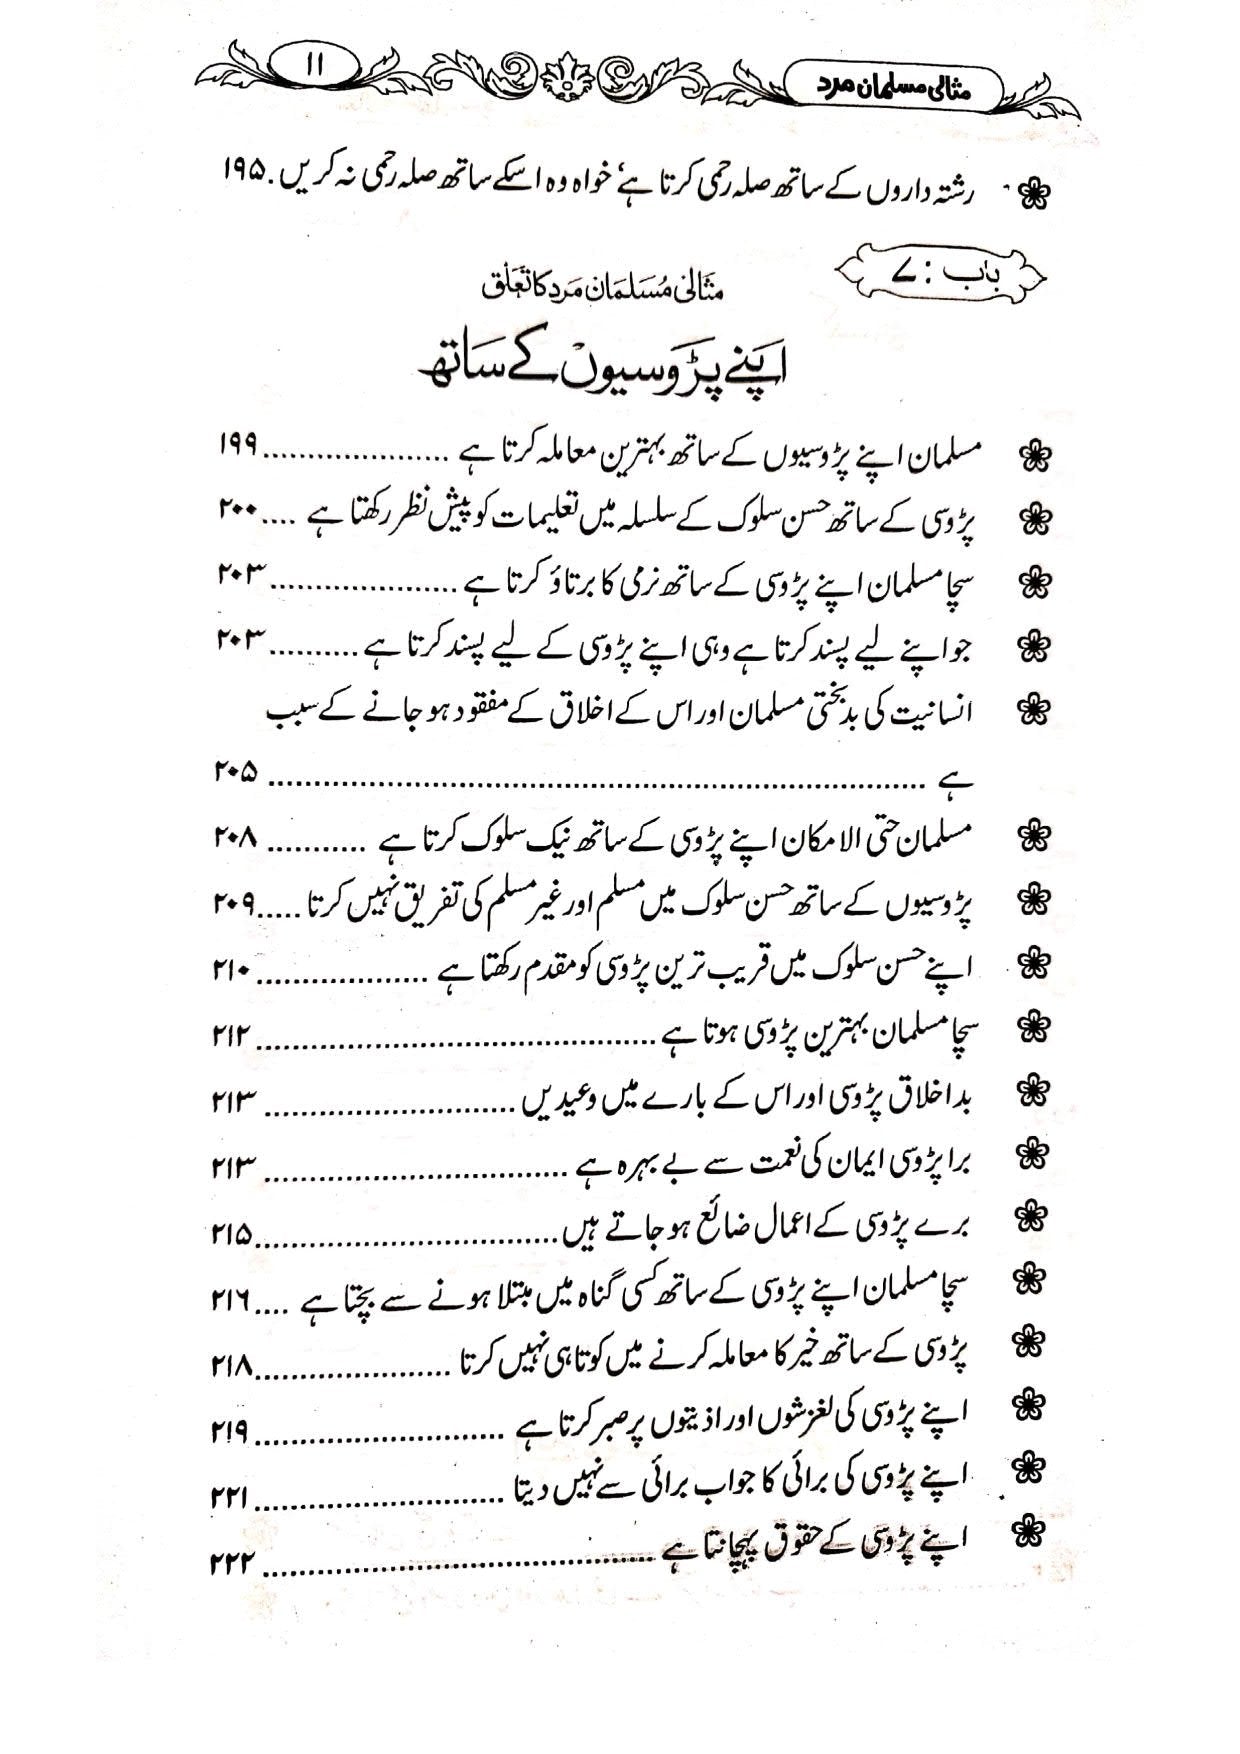 مثالی مسلمان مرد ۱۱
رشتہ داروں کے ساتھ صلہ رحمی کرتا ہے‘ خواہ وہ اسکے ساتھ صلہ رحمی نہ کریں. ۱۹۵
باب : ۷
مثالی مسلمان مرد کا تعلق
اپنے پڑوسیوں کے ساتھ
مسلمان اپنے پڑوسیوں کے ساتھ بہترین معاملہ کرتا ہے ..................... ۱۹۹
پڑوسی کے ساتھ حسن سلوک کے سلسلہ میں تعلیمات کو پیش نظر رکھتا ہے .... ۲۰۰
سچا مسلمان اپنے پڑوسی کے ساتھ نرمی کا برتاؤ کرتا ہے ..................... ۲۰۳
جو اپنے لیے پسند کرتا ہے وہی اپنے پڑوسی کے لیے پسند کرتا ہے .......... ۲۰۳
انسانیت کی بدبختی مسلمان اور اس کے اخلاق کے مفقود ہو جانے کے سبب
ہے ........................................................................ ۲۰۵
مسلمان حتی الامکان اپنے پڑوسی کے ساتھ نیک سلوک کرتا ہے ........... ۲۰۸
پڑوسیوں کے ساتھ حسن سلوک میں مسلم اور غیر مسلم کی تفریق نہیں کرتا ..... ۲۰۹
اپنے حسن سلوک میں قریب ترین پڑوسی کو مقدم رکھتا ہے ................... ۲۱۰
سچا مسلمان بہترین پڑوسی ہوتا ہے ............................................ ۲۱۲
بد اخلاق پڑوسی اور اس کے بارے میں وعیدیں ............................ ۲۱۳
برا پڑوسی ایمان کی نعمت سے بے بہرہ ہے .................................. ۲۱۳
برے پڑوسی کے اعمال ضائع ہو جاتے ہیں .................................. ۲۱۵
سچا مسلمان اپنے پڑوسی کے ساتھ کسی گناہ میں مبتلا ہونے سے بچتا ہے .... ۲۱۶
پڑوسی کے ساتھ خیر کا معاملہ کرنے میں کوتاہی نہیں کرتا ...................... ۲۱۸
اپنے پڑوسی کی لغزشوں اور اذیتوں پر صبر کرتا ہے ............................ ۲۱۹
اپنے پڑوسی کی برائی کا جواب برائی سے نہیں دیتا ............................ ۲۲۱
اپنے پڑوسی کے حقوق پہچانتا ہے ............................................ ۲۲۲